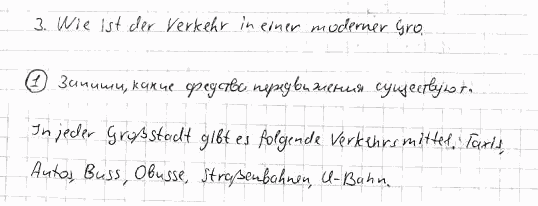 3. Wie ist der Verkehr in einer moderner Gro.
① Запиши, какие средства передвижения существуют.
In jeder Großstadt gibt es folgende Verkehrsmittel: Taxis,
Autos, Buss, Obusse, Straßenbahnen, U-Bahn.